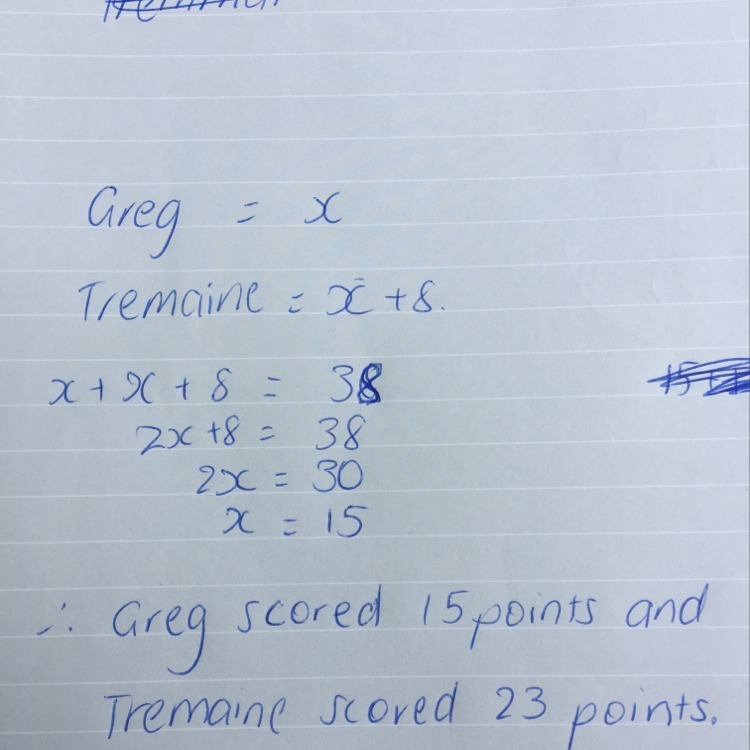 Greg = x
Tremaine = x + 8.
x + x + 8 = 38
2x + 8 = 38
2x = 30
x = 15
∴ Greg scored 15 points and
Tremaine scored 23 points.